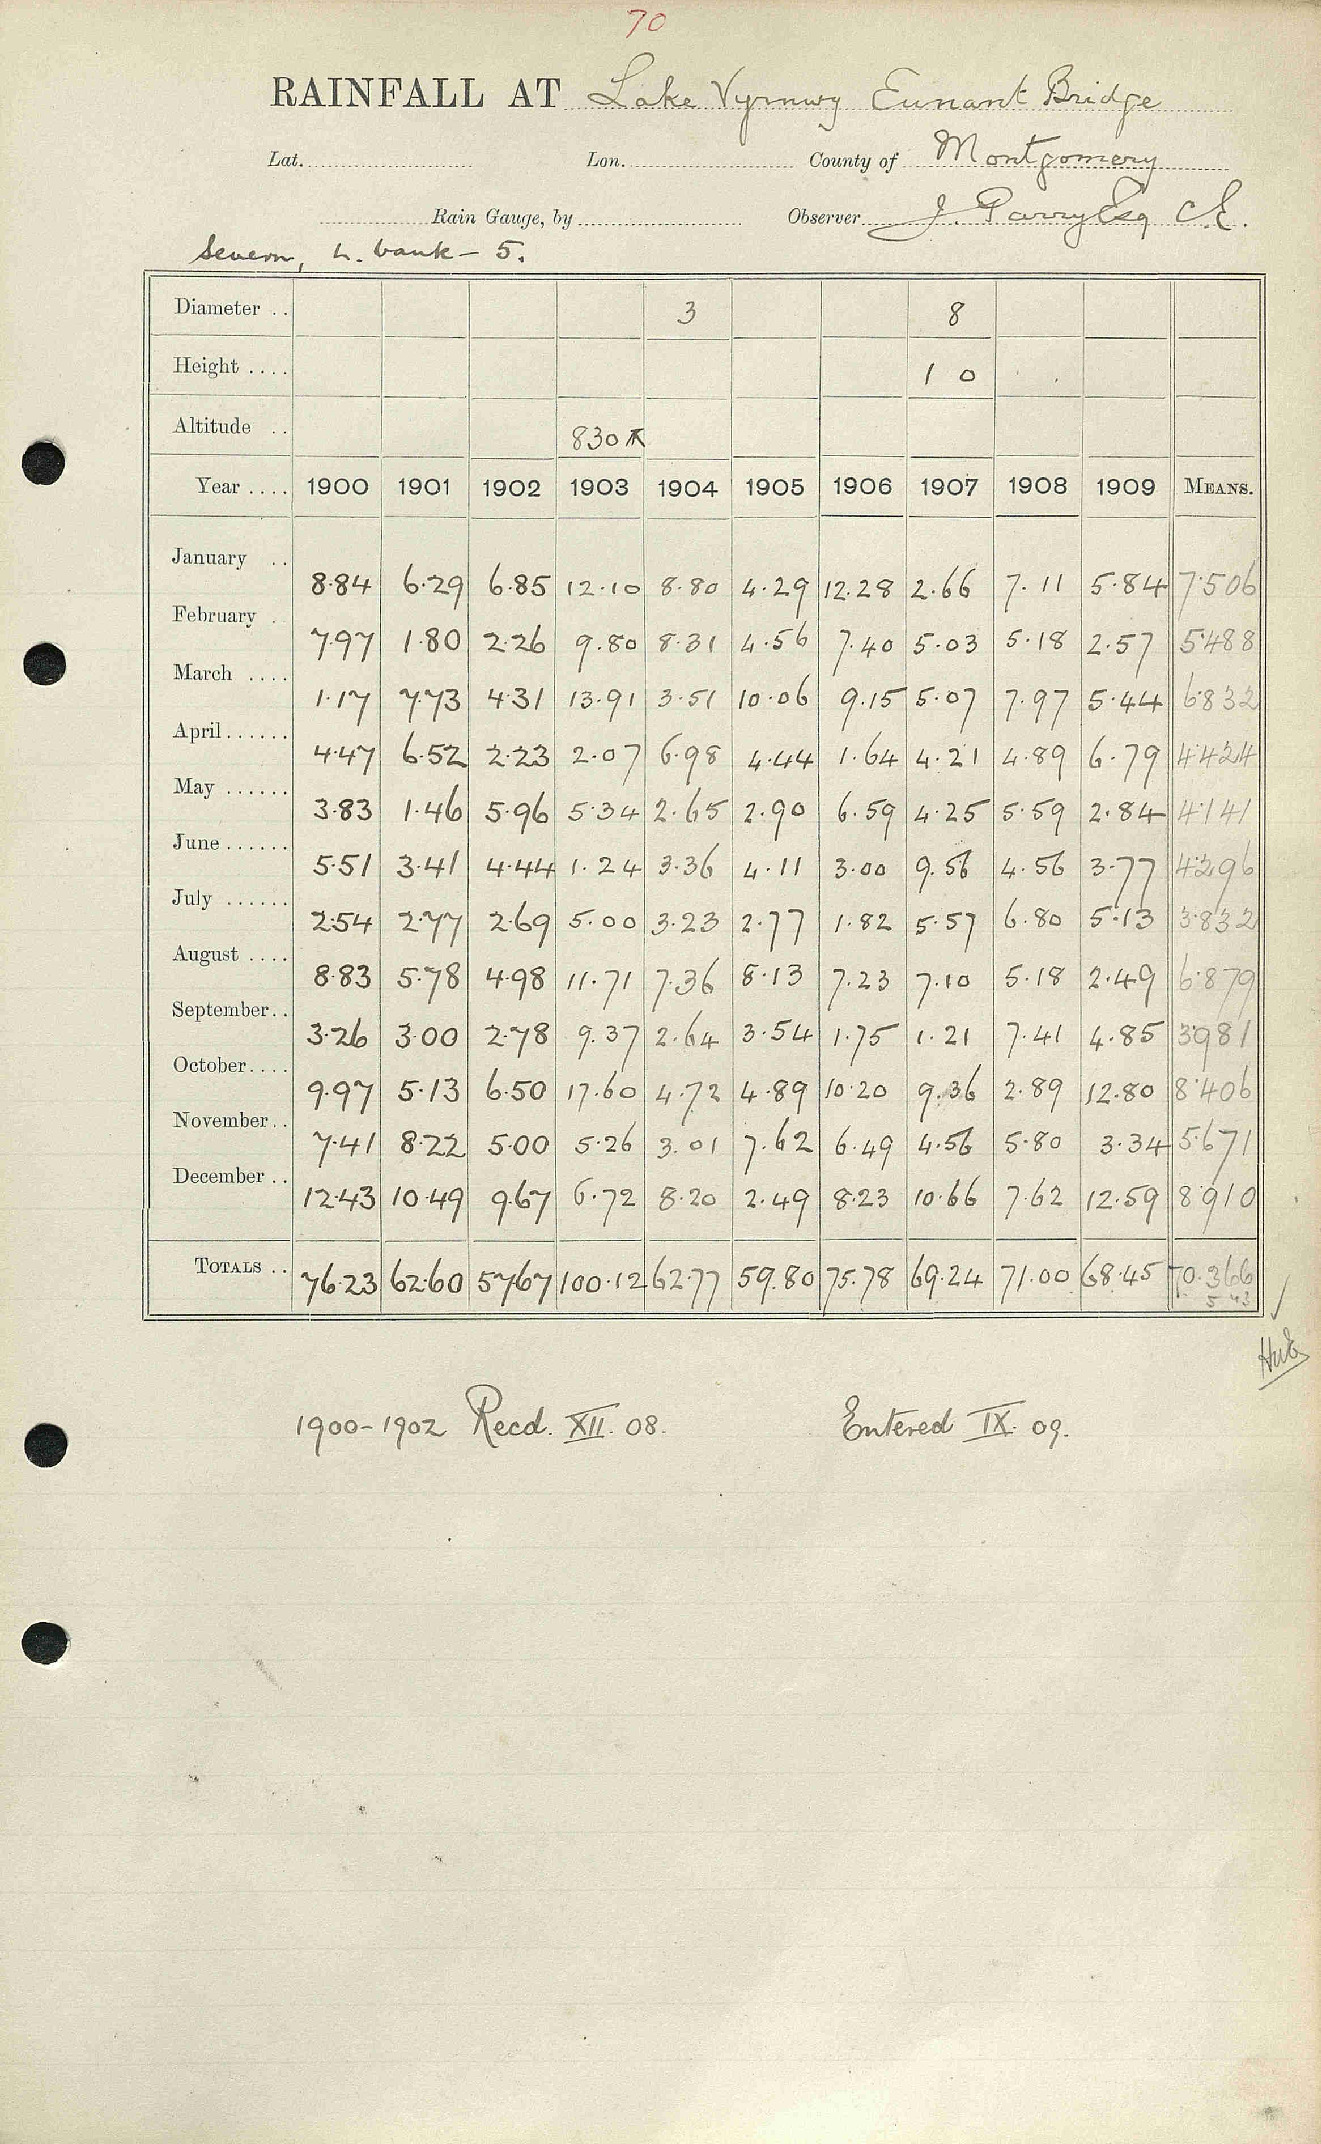 70
RAINFALL AT Lake Vyrnwy Eunant Bridge
Lat. Lon. County of Montgomery
Rain Gauge, by Observer J. Parry Esq C.E.
Severn, L. bank - 5.
Diameter .. 3 8
Height .... 1 0
Altitude .. 830
Year .... 1900 1901 1902 1903 1904 1905 1906 1907 1908 1909 MEANS.
January .. 8.84 6.29 6.85 12.10 8.80 4.29 12.28 2.66 7.11 5.84 7.506
February . 7.97 1.80 2.26 9.80 8.31 4.56 7.40 5.03 5.18 2.57 5.488
March .... 1.17 7.73 4.31 13.91 3.51 10.06 9.15 5.07 7.97 5.44 6.832
April...... 4.47 6.52 2.23 2.07 6.98 4.44 1.64 4.21 4.89 6.79 4.424
May ...... 3.83 1.46 5.96 5.34 2.65 2.90 6.59 4.25 5.59 2.84 4.141
June...... 5.51 3.41 4.44 1.24 3.36 4.11 3.00 9.56 4.56 3.77 4.296
July ...... 2.54 2.77 2.69 5.00 3.23 2.77 1.82 5.57 6.80 5.13 3.832
August .... 8.83 5.78 4.98 11.71 7.36 8.13 7.23 7.10 5.18 2.49 6.879
September.. 3.26 3.00 2.78 9.37 2.64 3.54 1.75 1.21 7.41 4.85 3.981
October.... 9.97 5.13 6.50 17.60 4.72 4.89 10.20 9.36 2.89 12.80 8.406
November.. 7.41 8.22 5.00 5.26 3.01 7.62 6.49 4.56 5.80 3.34 5.671
December .. 12.43 10.49 9.67 6.72 8.20 2.49 8.23 10.66 7.62 12.59 8.910
TOTALS .. 76.23 62.60 57.67 100.12 62.77 59.80 75.78 69.24 71.00 68.45 70.366
1900-1902 Recd. XII. 08. Entered IX. 09.